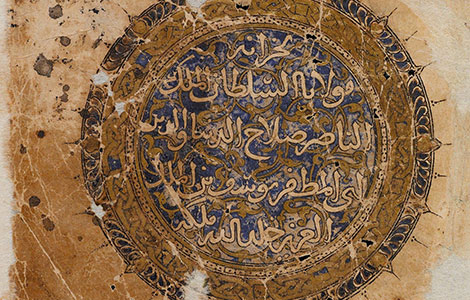 لخزانة
مولانا السلطان الملك
الناصر صلاح الدنيا والدين
ابي المظفر يوسف بن الملك
العزيز خلد الله ملكه